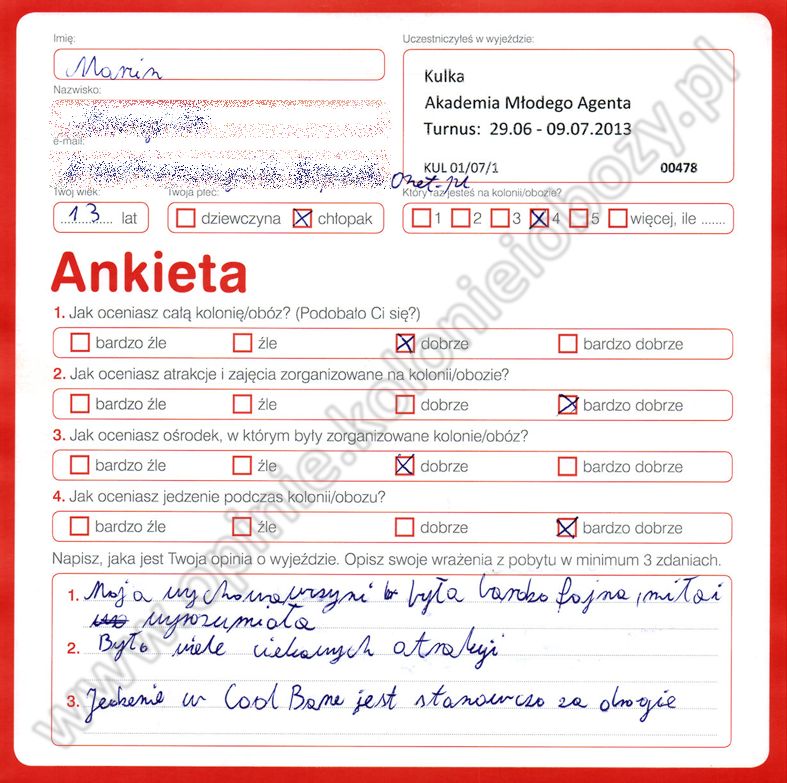 Imię:
Marcin
Uczestniczyłeś w wyjeździe:
Kulka
Akademia Młodego Agenta
Turnus: 29.06 - 09.07.2013
KUL 01/07/1 00478
Nazwisko:
e-mail:
Onet.pl
Twój wiek:
13 lat
Twoja płeć:
dziewczyna chłopak
Który raz jesteś na kolonii/obozie?
1 2 3 4 5 więcej, ile .......
Ankieta
1. Jak oceniasz całą kolonię/obóz? (Podobało Ci się?)
bardzo źle źle dobrze bardzo dobrze
2. Jak oceniasz atrakcje i zajęcia zorganizowane na kolonii/obozie?
bardzo źle źle dobrze bardzo dobrze
3. Jak oceniasz ośrodek, w którym były zorganizowane kolonie/obóz?
bardzo źle źle dobrze bardzo dobrze
4. Jak oceniasz jedzenie podczas kolonii/obozu?
bardzo źle źle dobrze bardzo dobrze
Napisz, jaka jest Twoja opinia o wyjeździe. Opisz swoje wrażenia z pobytu w minimum 3 zdaniach.
1. Moja wychowawczyni była bardzo fajna, miła i
wyrozumiała
2. Było wiele ciekawych atrakcji
3. Jedzenie w Cool Barze jest stanowczo za drogie
www.opinie.kolonieiobozy.pl